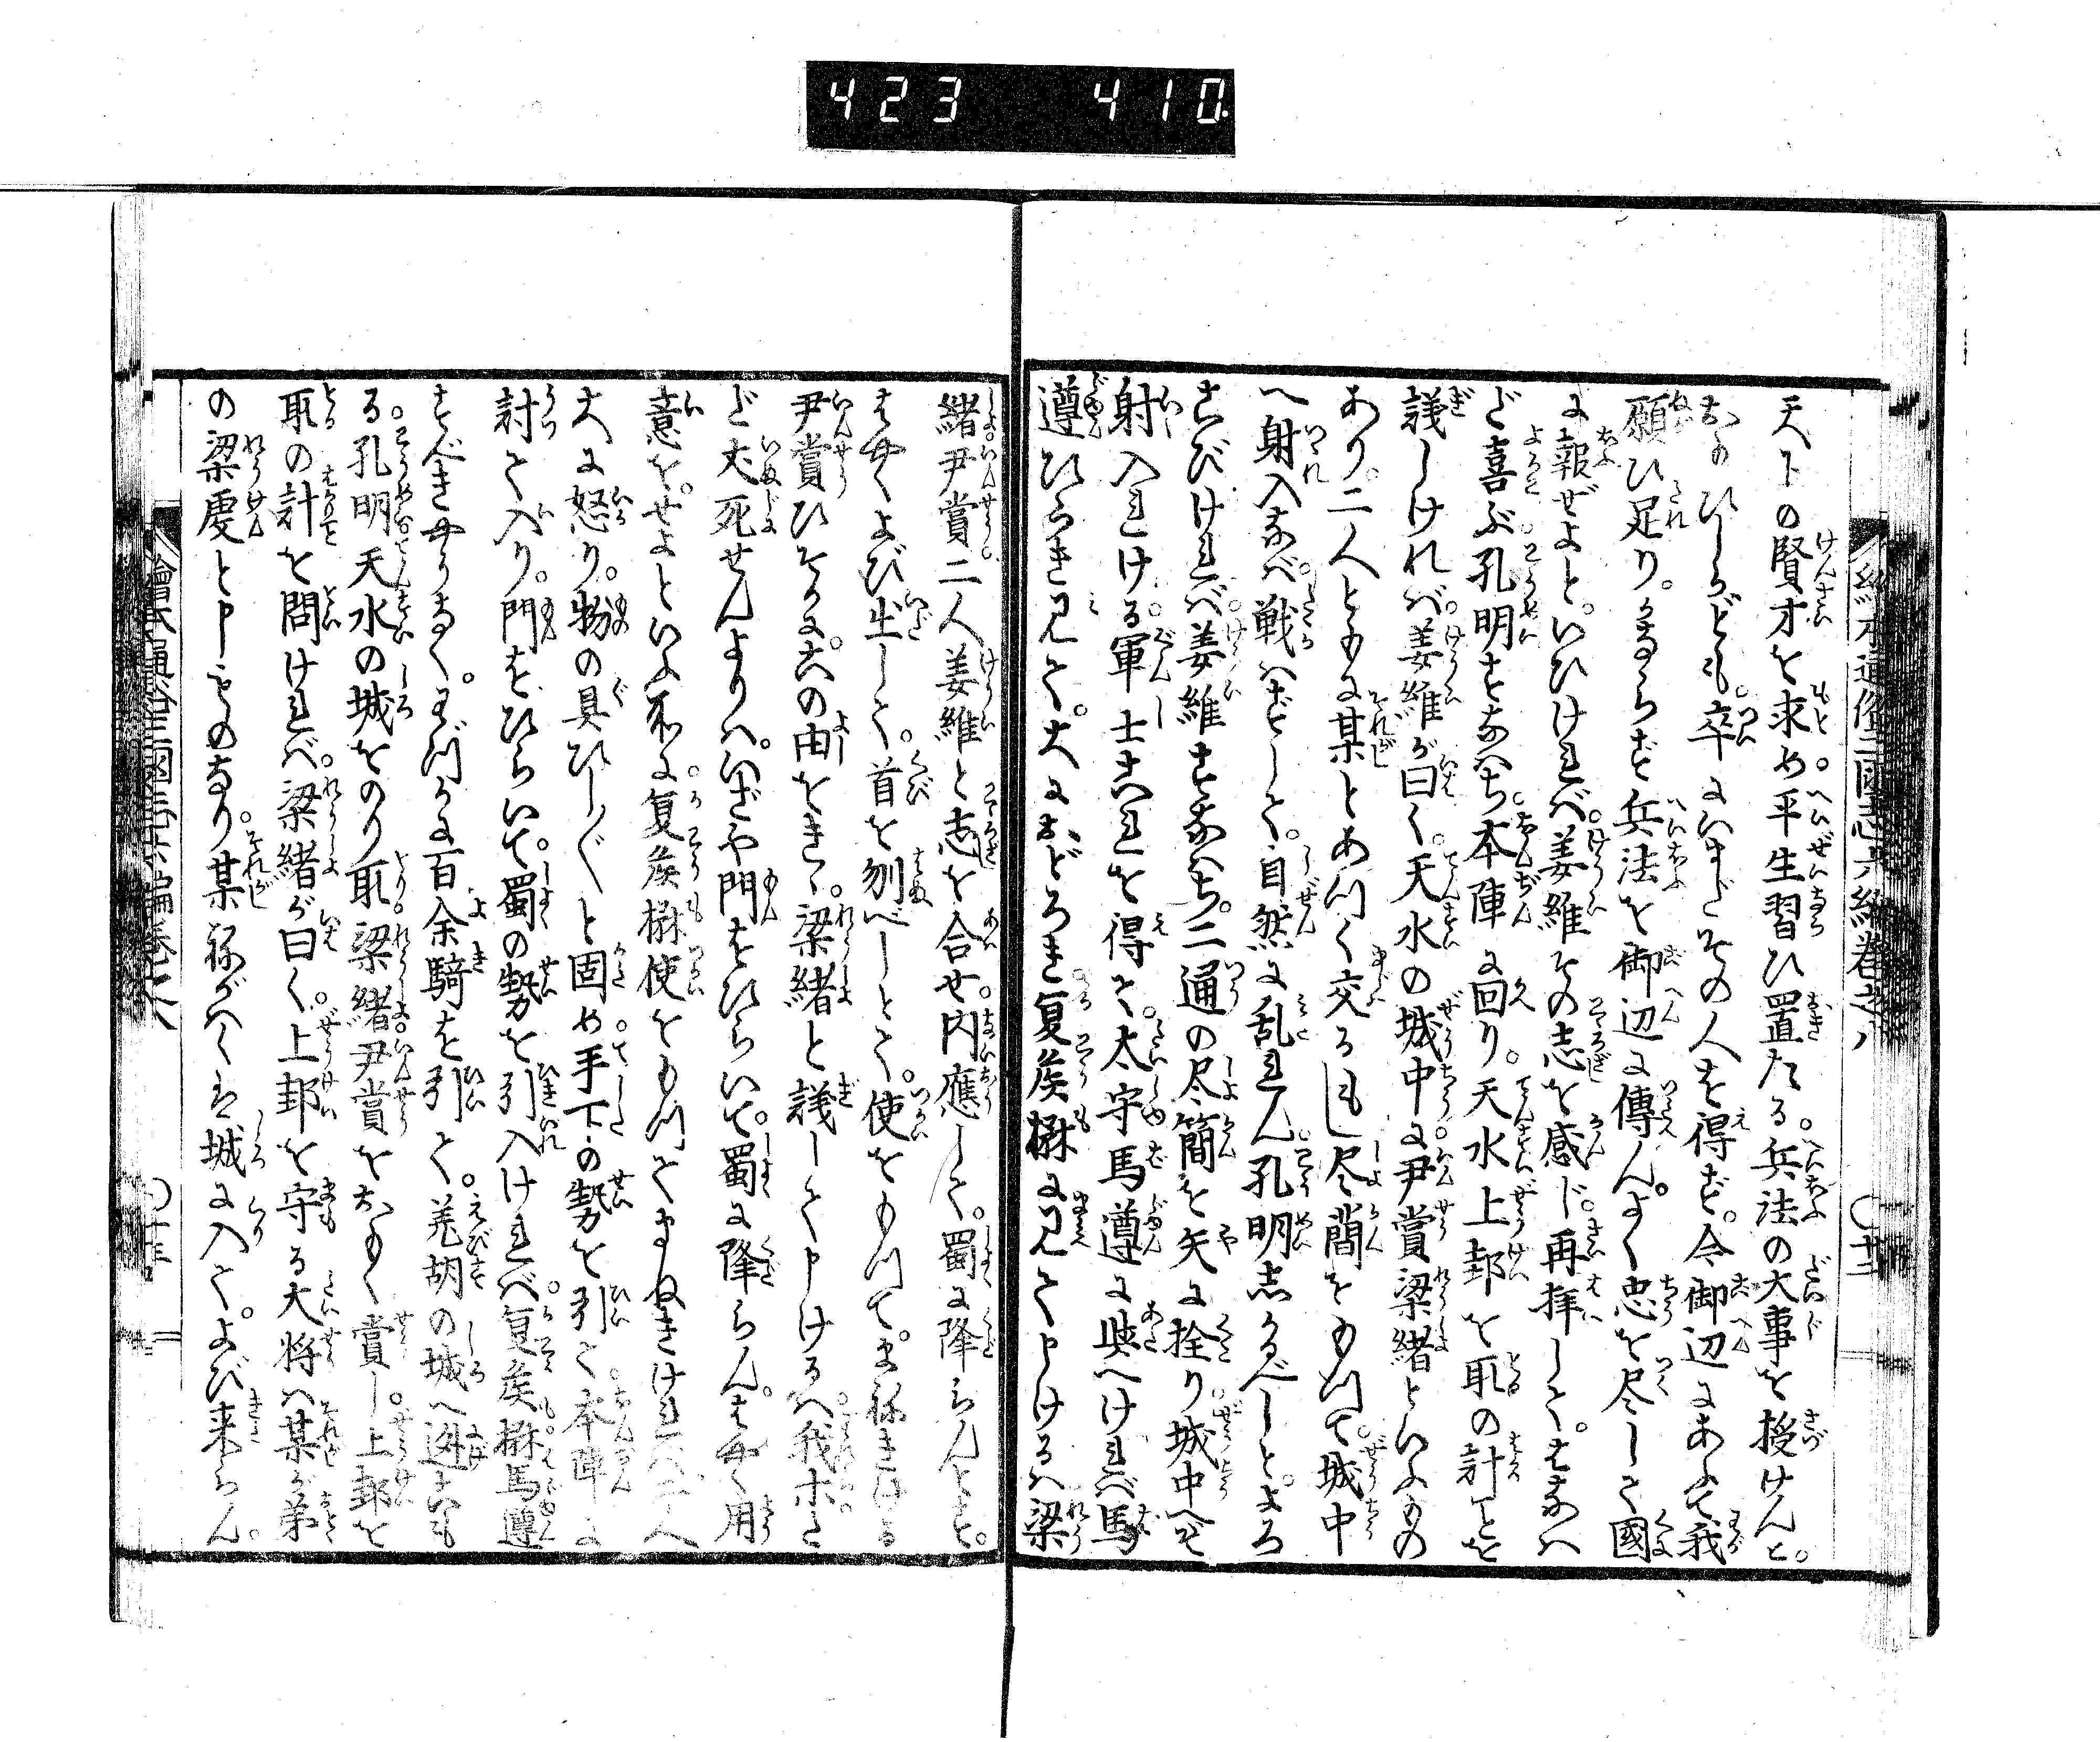 423 410
繪本通俗三國志六編卷之八 〇十二
天下の賢才を求め平生習ひ置たる。兵法の大事を授けんと。
おのひしかども。卒にいまだその人を得ず。今御辺にあふて我
願ひ足り。かならず兵法を御辺に傳ん。よく忠を尽して國
に報ぜよと。いひければ。姜維その志を感じ。再拝して。はなハ
だ喜ぶ。孔明すなハち。本陣に回り。天水上邽を取の計ごとを
議しけれバ。姜維が曰く。天水の城中に尹賞梁緒といふもの
あり。二人ともに某とあつく交る。もし尽簡をもつて。城中
へ射入なバ。戦ハずして。自然に乱れん。孔明志かるべしと。よろ
こびければ。姜維すなハち。二通の尽簡を矢に拴り城中へぞ
射入れける。軍士これを得て。太守馬遵に與へければ馬
遵ひらき見て。大におどろき夏矦楙に見て申けるハ梁
緒尹賞二人姜維と志を合せ。内應して。蜀に降らんとす。
はやくよび生して。首を刎べしとて。使をもつて。まねきける
尹賞ひそかに。この由をきゝ。梁緒と議して申けるハ我ホた
ど犬死せんよりハ。いざや門をひらいて。蜀に降らん。はやく用
意を。せよといふ所に。夏矦楙使をもつてまねきければ二人
大に怒り。物の具ひし〱と固め。手下の勢を引て。本陣に
討て入り。門をひらいて。蜀の勢を引入ければ。夏矦楙馬遵
すべきやうなく。わづかに百余騎を引て。羌胡の城へ逃こも
る。孔明天水の城をのり取。梁緒尹賞をおもく賞し。上邽を
取の計を問ければ。梁緒が曰く。上邽を守る大将ハ某が弟
の梁虔と申ものなり。某ねがハくは城に入て。よび来らん。
繪本通俗三國志六編卷之八 〇十三